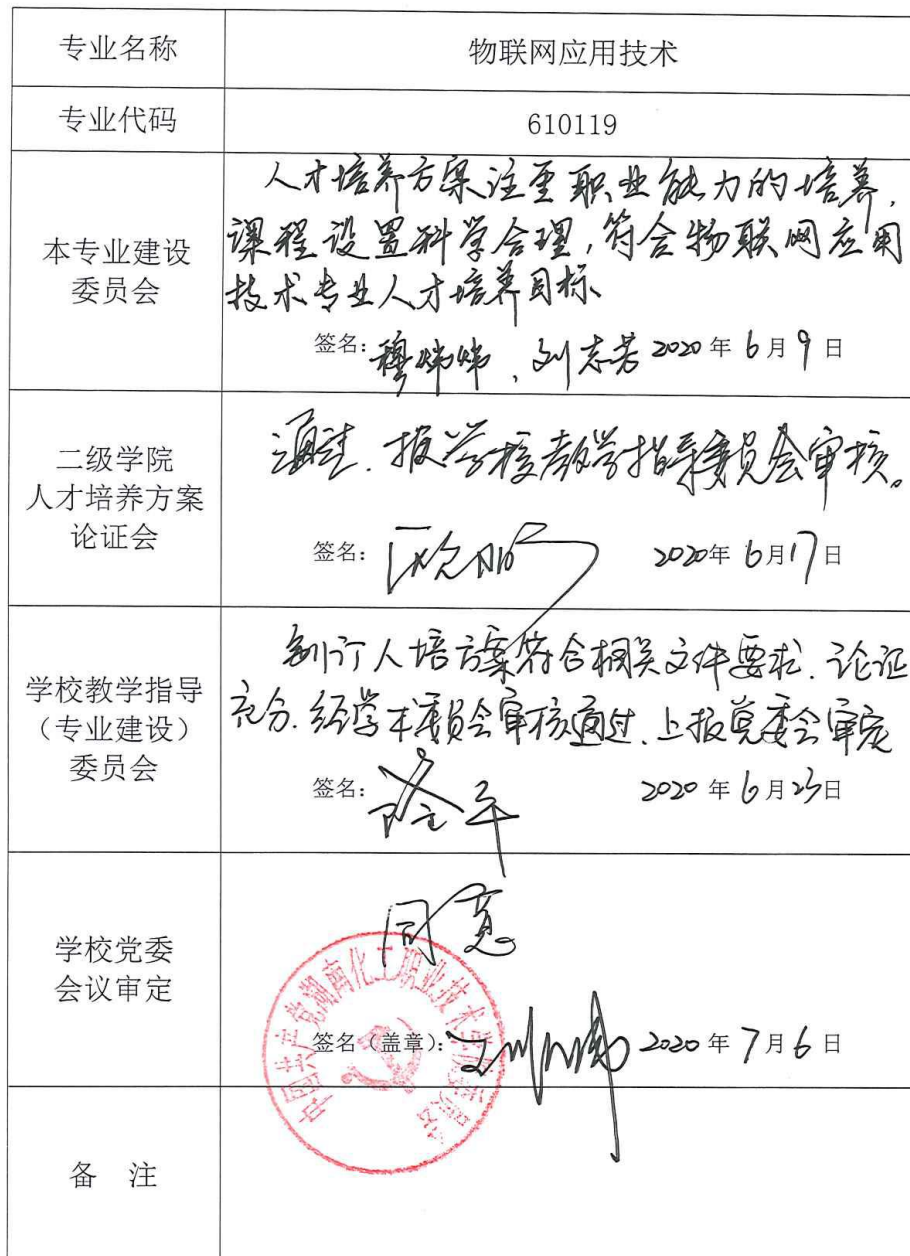 专业名称
物联网应用技术
专业代码
610119
本专业建设
委员会
人才培养方案注重职业能力的培养,
课程设置科学合理,符合物联网应用
技术专业人才培养目标
签名: 穆炜炜、刘志芳 2020年6月9日
二级学院
人才培养方案
论证会
通过.报学校教学指导委员会审核。
签名: 2020年6月17日
学校教学指导
(专业建设)
委员会
制订人培方案符合相关文件要求.论证
充分.经学本委员会审核通过.上报党委会审定
签名: 2020年6月23日
学校党委
会议审定
同意
签名(盖章): 2020年7月6日
中国共产党湖南化工职业技术学院委员会
备 注